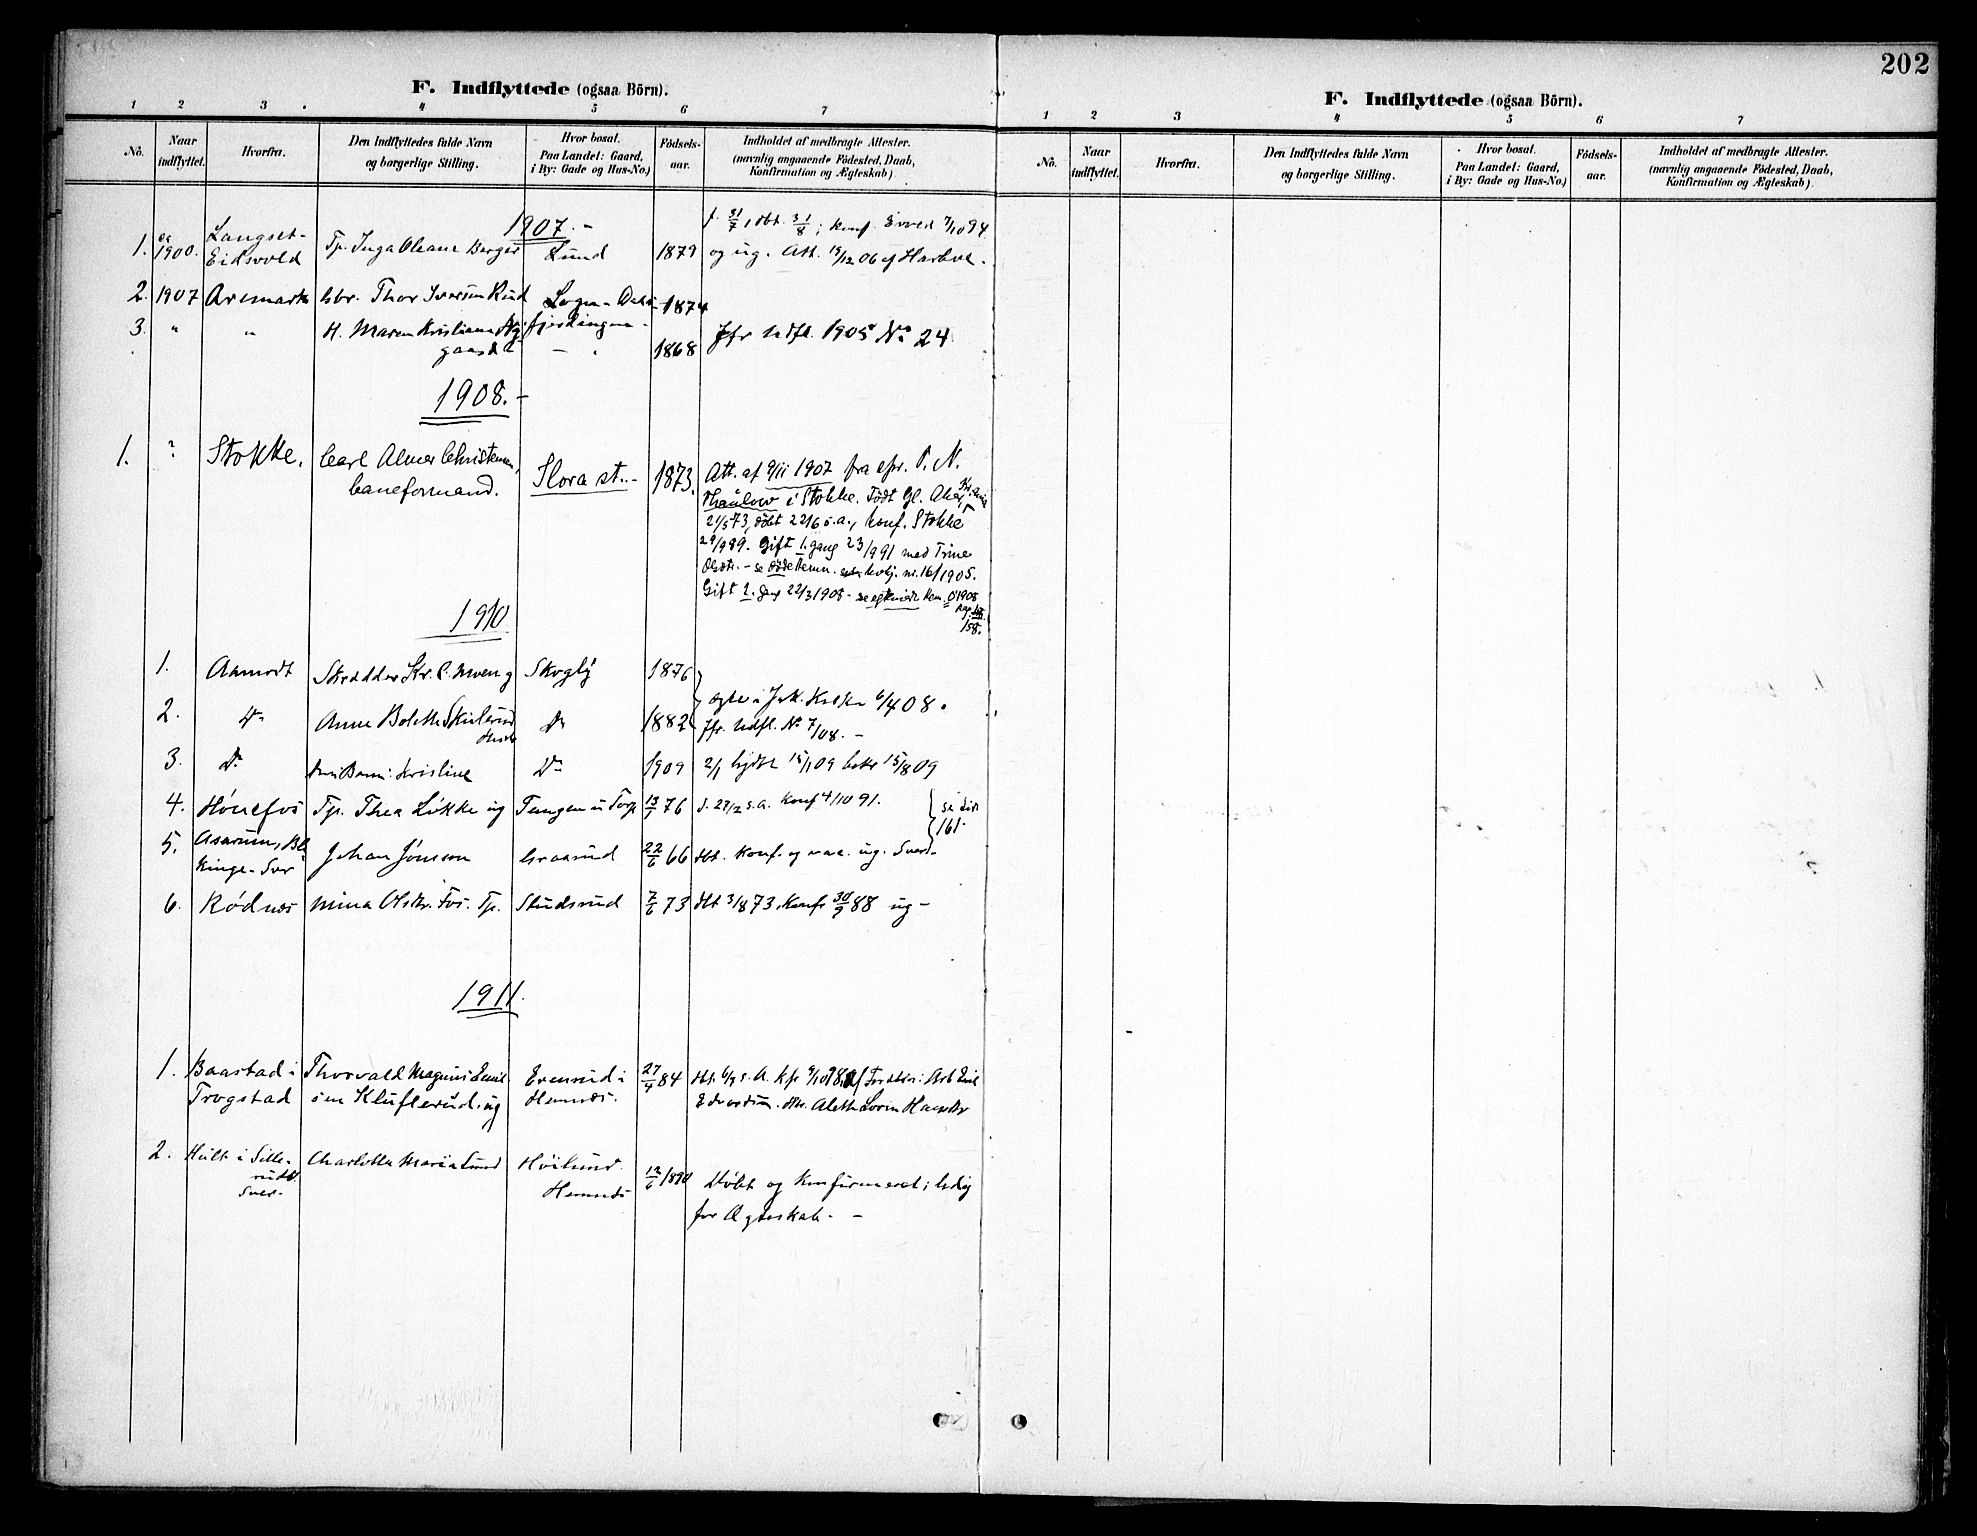 202
F. Indflyttede (ogsaa Börn).
1 2 3 4 5 6 7
No. Naar indflyttet. Hvorfra. Den Indflyttedes fulde Navn og borgerlige Stilling. Hvor bosat. Paa Landet: Gaard, i By: Gade og Hus-No.) Födsels-aar. Indholdet af medbragte Attester. (navnlig angaaende Födested, Daab, Konfirmation og Ægteskab)
1907.-
1. ca 1900. Langset- Eidsvold Tp. Inga Oleane Berger Lund 1879 f. 31/7, dbt. 31/8; konf. 7/10 94
og ug. Att. 19/12 06 af Harboe.
2. 1907 Aremark Gbr. Thor Iversen Rud 1874
3. " " H. Maren Kristiane Ny-
gaard 1868 Jfr Udfl. 1905 No 24
1908.-
1. ? Stokke. Carl Almer Christensen, Slora st.- 1873. Att. af 9/11 1907 fra spr. P. N.
baneformand. Thaulow i Stokke. Født Gl. Aker, Kr.ania
21/5 73, döbt 22/6 s.a., konf. Stokke
29/9 89. Gift 1. gang 23/9 91 med Trine
Olsdtr. - se döde kvkj. nr. 16/1905.
Gift 2. gang 22/3 1908 - se egteviede Hem. 1908
pag.
158.
1910
1. Aamodt Skrædder Kr. P. Moen g Skogly 1876
ægtev. i Kirke 6/4 08.
2. Do Anne Bolette Skulerud Do 1882 Jfr. Udfl. No 7/08.-
Hustr
3. Do Barn: Kristine Do 1909 2/1 15/1 09 15/8 09
4. Hønefos Tp. Thea Løkke ug Tangen u Torp 13/1 76 d. 27/2 s.a. Konf 4/10 91. se
161.
5. Asarum, Ble
kinge - Sver Johan Jönsson Graarud 22/6 66 dbt. konf. og vac. ug. Sver.
6. Rødnes Mina Olsdtr. Fos. Tp. Studsrud 7/6 73 dbt 3/8 73. Konf 30/9 88 ug-
1911.
1. Baastad i Thorvald Magnus Emil Evensrud i 27/4 84
Trøgstad sen Kluflerud. ug Hemnes. Edvardsen.
2. Hult i Sille- Charlotte Maria Lund Høilund 12/6 1890 Døbt og konfirmeret; ledig
rud
Sver- Hemnes for Ægteskab. -
F. Indflyttede (ogsaa Börn).
1 2 3 4 5 6 7
No. Naar indflyttet. Hvorfra. Den Indflyttedes fulde Navn og borgerlige Stilling. Hvor bosat. Paa Landet: Gaard, i By: Gade og Hus-No.) Födsels-aar. Indholdet af medbragte Attester. (navnlig angaaende Födested, Daab, Konfirmation og Ægteskab)